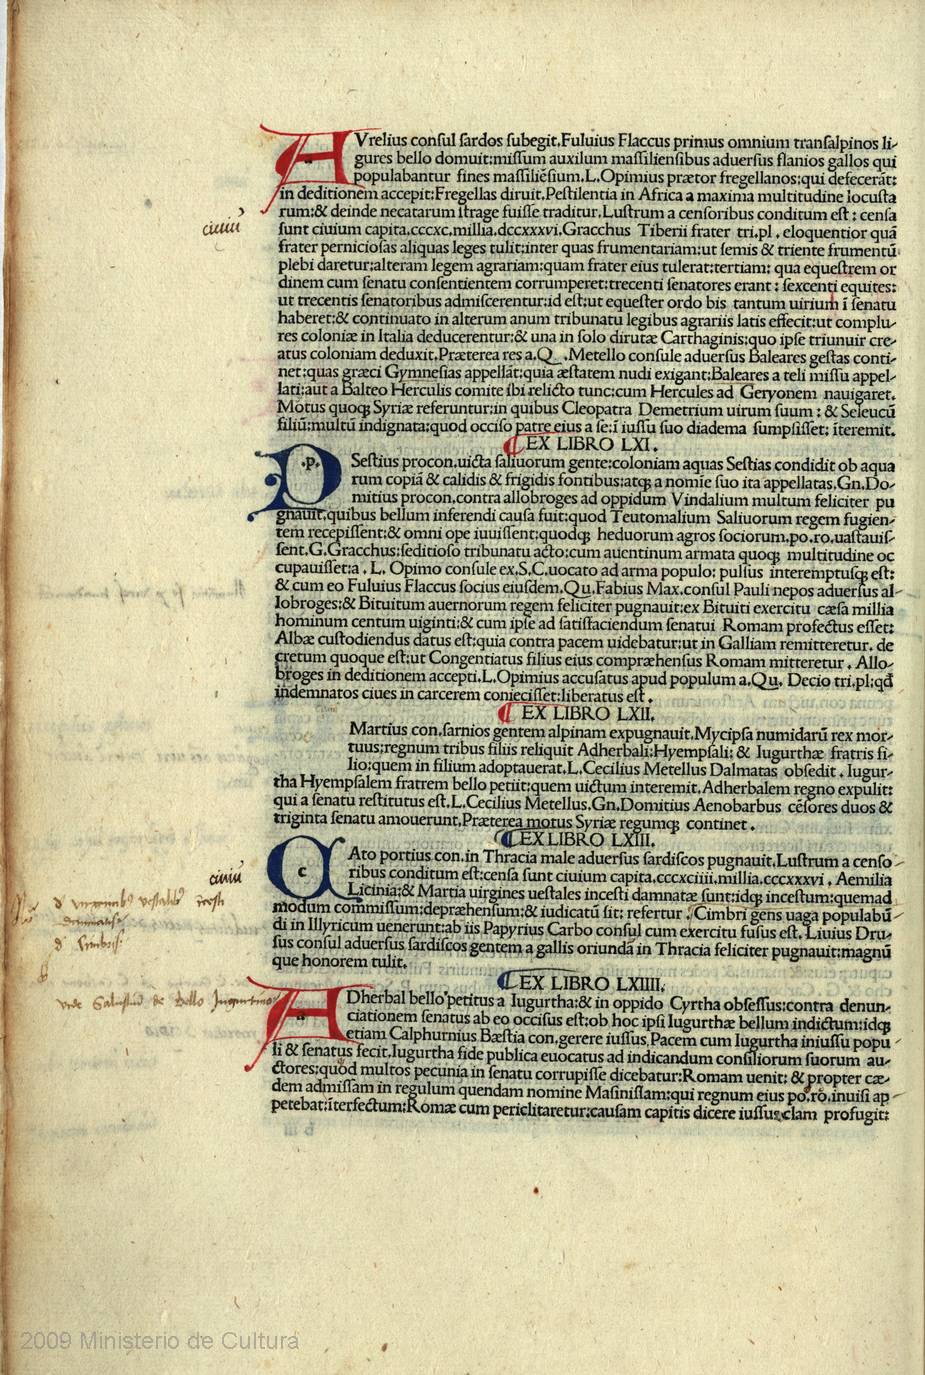 AVrelius conſul ſardos ſubegit.Fuluius Flaccus primus omnium tranſalpinos li-
gures bello domuit:miſſum auxilum maſſilienſibus aduerſus ſlanios gallos qui
populabantur fines maſſiliēſium.L.Opimius prætor fregellanos:qui defecerāt:
in deditionem accepit:Fregellas diruit.Peſtilentia in Africa a maxima multitudine locuſta
rum:& deinde necatarum ſtrage fuiſſe traditur.Luſtrum a cenſoribus conditum eſt: cenſa
ciuiū
ſunt ciuium capita.cccxc.millia.dccxxxvi.Gracchus Tiberii frater tri.pl. eloquentior quā
frater pernicioſas aliquas leges tulit:inter quas frumentariam:ut ſemis & triente frumentū
plebi daretur:alteram legem agrariam:quam frater eius tulerat:tertiam: qua equeſtrem or
dinem cum ſenatu conſentientem corrumperet:trecenti ſenatores erant: ſexcenti equites:
ut trecentis ſenatoribus admiſcerentur:id eſt:ut equeſter ordo bis tantum uirium ī ſenatu
haberet:& continuato in alterum anum tribunatu legibus agrariis latis effecit:ut complu-
res coloniæ in Italia deducerentur:& una in ſolo dirutæ Carthaginis:quo ipſe triunuir cre-
atus coloniam deduxit.Præterea res a.Q. Metello conſule aduerſus Baleares geſtas conti-
net:quas græci Gymneſias appellāt:quia æſtatem nudi exigant:Baleares a teli miſſu appel-
lati:aut a Balteo Herculis comite ibi relicto tunc:cum Hercules ad Geryonem nauigaret.
Motus quoqꝫ Syriæ referuntur:in quibus Cleopatra Demetrium uirum ſuum: & Seleucū
filiū:multū indignata:quod occiſo patre eius a ſe:ī iuſſu ſuo diadema ſumpſiſſet: īteremit.
EX LIBRO LXI.
.p. Seſtius procon.uicta ſaliuorum gente:coloniam aquas Seſtias condidit ob aqua
rum copiā & calidis & frigidis fontibus:atqꝫ a nomie ſuo ita appellatas.Gn.Do-
mitius procon.contra allobroges ad oppidum Vindalium multum feliciter pu
gnauit.quibus bellum inferendi cauſa fuit:quod Teutomalium Saliuorum regem fugien-
tem recepiſſent:& omni ope iuuiſſent:quodqꝫ heduorum agros ſociorum.po.ro.uaſtauiſ-
ſent.G.Gracchus:ſeditioſo tribunatu acto:cum auentinum armata quoqꝫ multitudine oc
cupauiſſet:a. L. Opimo conſule ex.S.C.uocato ad arma populo: pulſus interemptuſqꝫ eſt:
& cum eo Fuluius Flaccus ſocius eiuſdem.Qu.Fabius Max.conſul Pauli nepos aduerſus al-
lobroges:& Bituitum auernorum regem feliciter pugnauit:ex Bituiti exercitu cæſa millia
hominum centum uiginti:& cum ipſe ad ſatiſfaciendum ſenatui Romam profectus eſſet:
Albæ cuſtodiendus datus eſt:quia contra pacem uidebatur:ut in Galliam remitteretur. de
cretum quoque eſt:ut Congentiatus filius eius compræhenſus Romam mitteretur. Allo-
broges in deditionem accepti.L.Opimius accuſatus apud populum a.Qu. Decio tri.pl:qđ
indemnatos ciues in carcerem conieciſſet:liberatus eſt.
EX LIBRO LXII.
Martius con.ſarnios gentem alpinam expugnauit.Mycipſa numidarū rex mor-
tuus:regnum tribus filiis reliquit Adherbali:Hyempſali: & Iugurthæ fratris fi-
lio:quem in filium adoptauerat.L.Cecilius Metellus Dalmatas obſedit. Iugur-
tha Hyempſalem fratrem bello petiit:quem uictum interemit.Adherbalem regno expulit:
qui a ſenatu reſtitutus eſt.L.Cecilius Metellus.Gn.Domitius Aenobarbus cēſores duos &
triginta ſenatu amouerunt.Præterea motus Syriæ regumqꝫ continet.
EX LIBRO LXIII.
CAto portius con.in Thracia male aduerſus ſardiſcos pugnauit.Luſtrum a cenſo-
ciuiū
ribus conditum eſt:cenſa ſunt ciuium capita.cccxciiii.millia.cccxxxvi. Aemilia
Licinia:& Martia uirgines ueſtales inceſti damnatæ ſunt:idqꝫ inceſtum:quemad
modum commiſſum:depræhenſum:& iudicatū ſit: refertur. Cimbri gens uaga populabū-
di in Illyricum uenerunt:ab iis Papyrius Carbo conſul cum exercitu fuſus eſt. Liuius Dru-
ſus conſul aduerſus ſardiſcos gentem a gallis oriundā in Thracia feliciter pugnauit:magnū
que honorem tulit.
EX LIBRO LXIIII.
vide Salustiū de Bello Iugurtino
ADherbal bello petitus a Iugurtha:& in oppido Cyrtha obſeſſus:contra denun-
ciationem ſenatus ab eo occiſus eſt:ob hoc ipſi Iugurthæ bellum indictum:idqꝫ
etiam Calphurnius Bæſtia con.gerere iuſſus.Pacem cum Iugurtha iniuſſu popu-
li & ſenatus fecit.Iugurtha fide publica euocatus ad indicandum conſiliorum ſuorum au-
ctores:quod multos pecunia in ſenatu corrupiſſe dicebatur:Romam uenit: & propter cæ-
dem admiſſam in regulum quendam nomine Maſiniſſam:qui regnum eius po.ro.inuiſi ap-
petebat:īterfectum:Romæ cum periclitaretur:cauſam capitis dicere iuſſus:clam profugit:
2009 Ministerio de Cultura